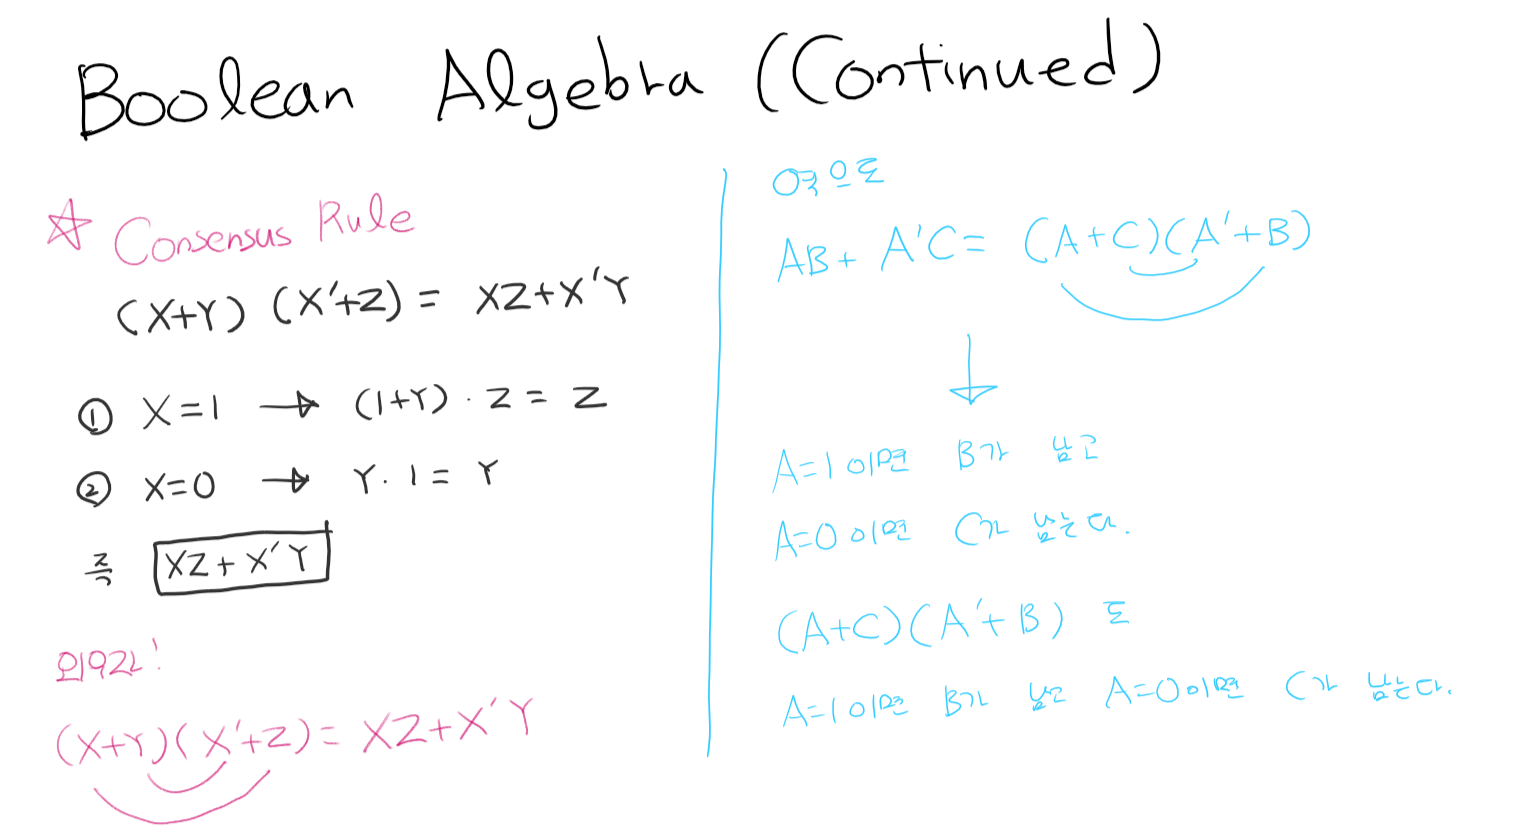 Boolean Algebra (Continued)
☆ Consensus Rule
(X+Y) (X'+Z) = XZ+X'Y
① X=1 → (1+Y) · Z = Z
② X=0 → Y · 1 = Y
즉 XZ + X'Y
외우자!
(X+Y)(X'+Z) = XZ+X'Y
역으로
AB + A'C = (A+C)(A'+B)
↓
A=1 이면 B가 남고
A=0 이면 C가 남는다.
(A+C)(A'+B) 도
A=1 이면 B가 남고 A=0 이면 C가 남는다.